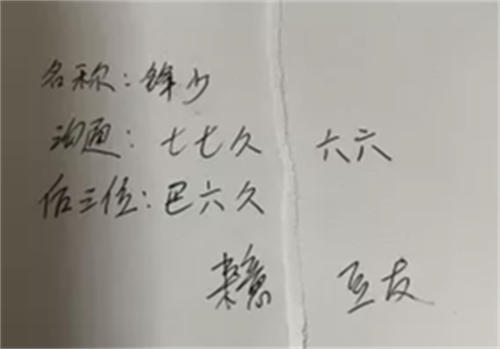 名称：锋少
沟通：七七久 六六
后三位：巴六久
来意 豆友